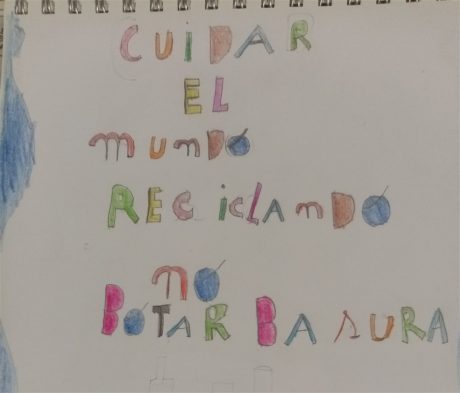 CUIDAR
EL
mUnDO
RECicLAmDO
mO
BOTAR BASURA